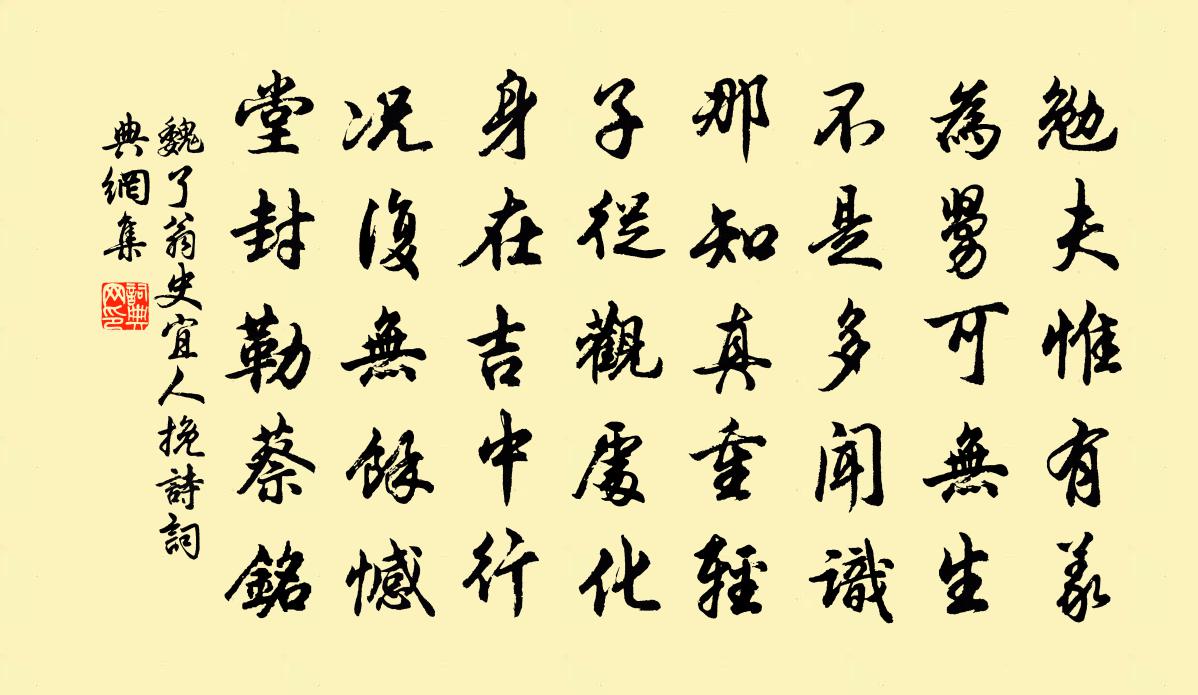 勉夫惟有義
為舅可無生
不是多聞識
那知真重輕
子從觀處化
身在吉中行
況復無餘憾
堂封勒蔡銘
魏了翁史宜人挽詩詞
典網集
詞典
网印